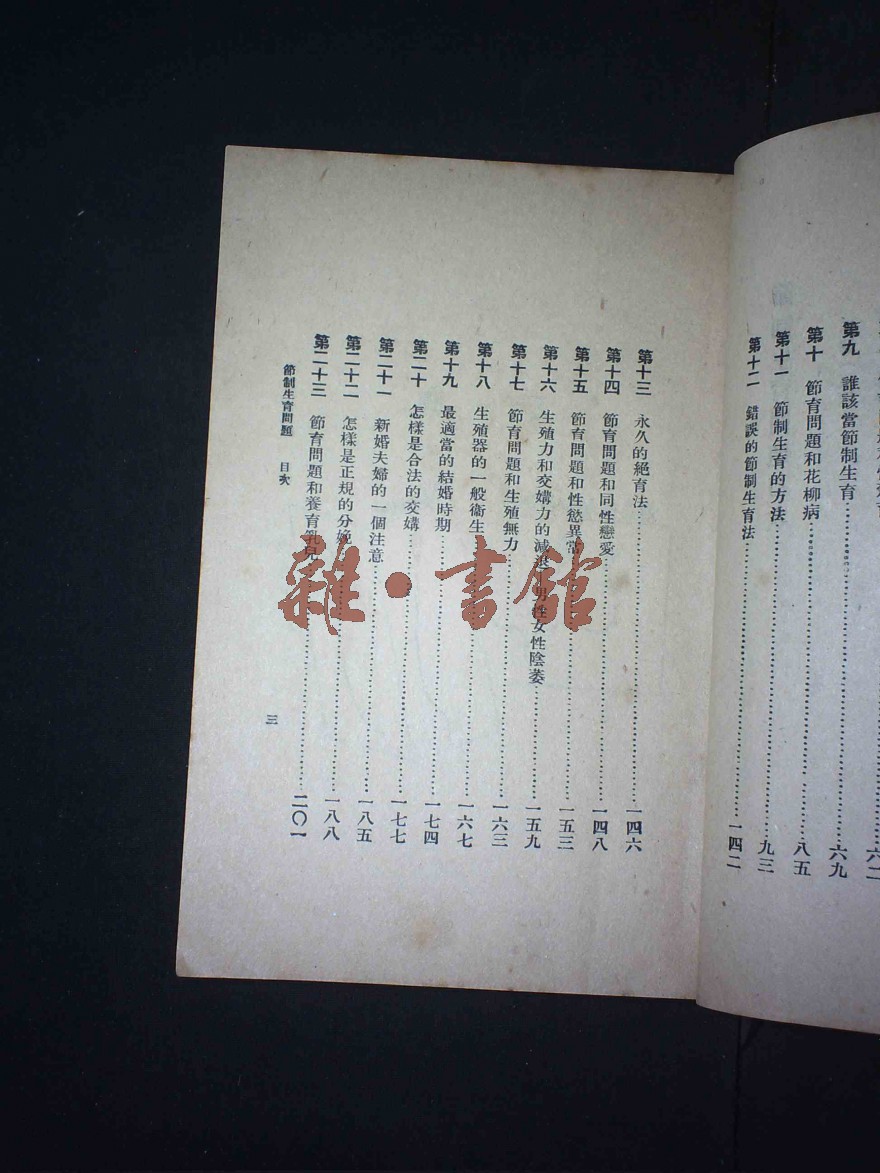 第九　誰該當節制生育……六九
第十　節育問題和花柳病……八五
第十一　節制生育的方法……九三
第十二　錯誤的節制生育法……一四二
第十三　永久的絕育法……一四六
第十四　節育問題和同性戀愛……一四八
第十五　節育問題和性慾異常……一五三
第十六　生殖力和交媾力的減退　男性女性陰萎……一五九
第十七　節育問題和生殖無力……一六三
第十八　生殖器的一般衞生……一六七
第十九　最適當的結婚時期……一七四
第二十　怎樣是合法的交媾……一七七
第二十一　新婚夫婦的一個注意……一八五
第二十二　怎樣是正規的分娩……一八八
第二十三　節育問題和養育乳兒……二〇一
節制生育問題　目次
三
雜·書館